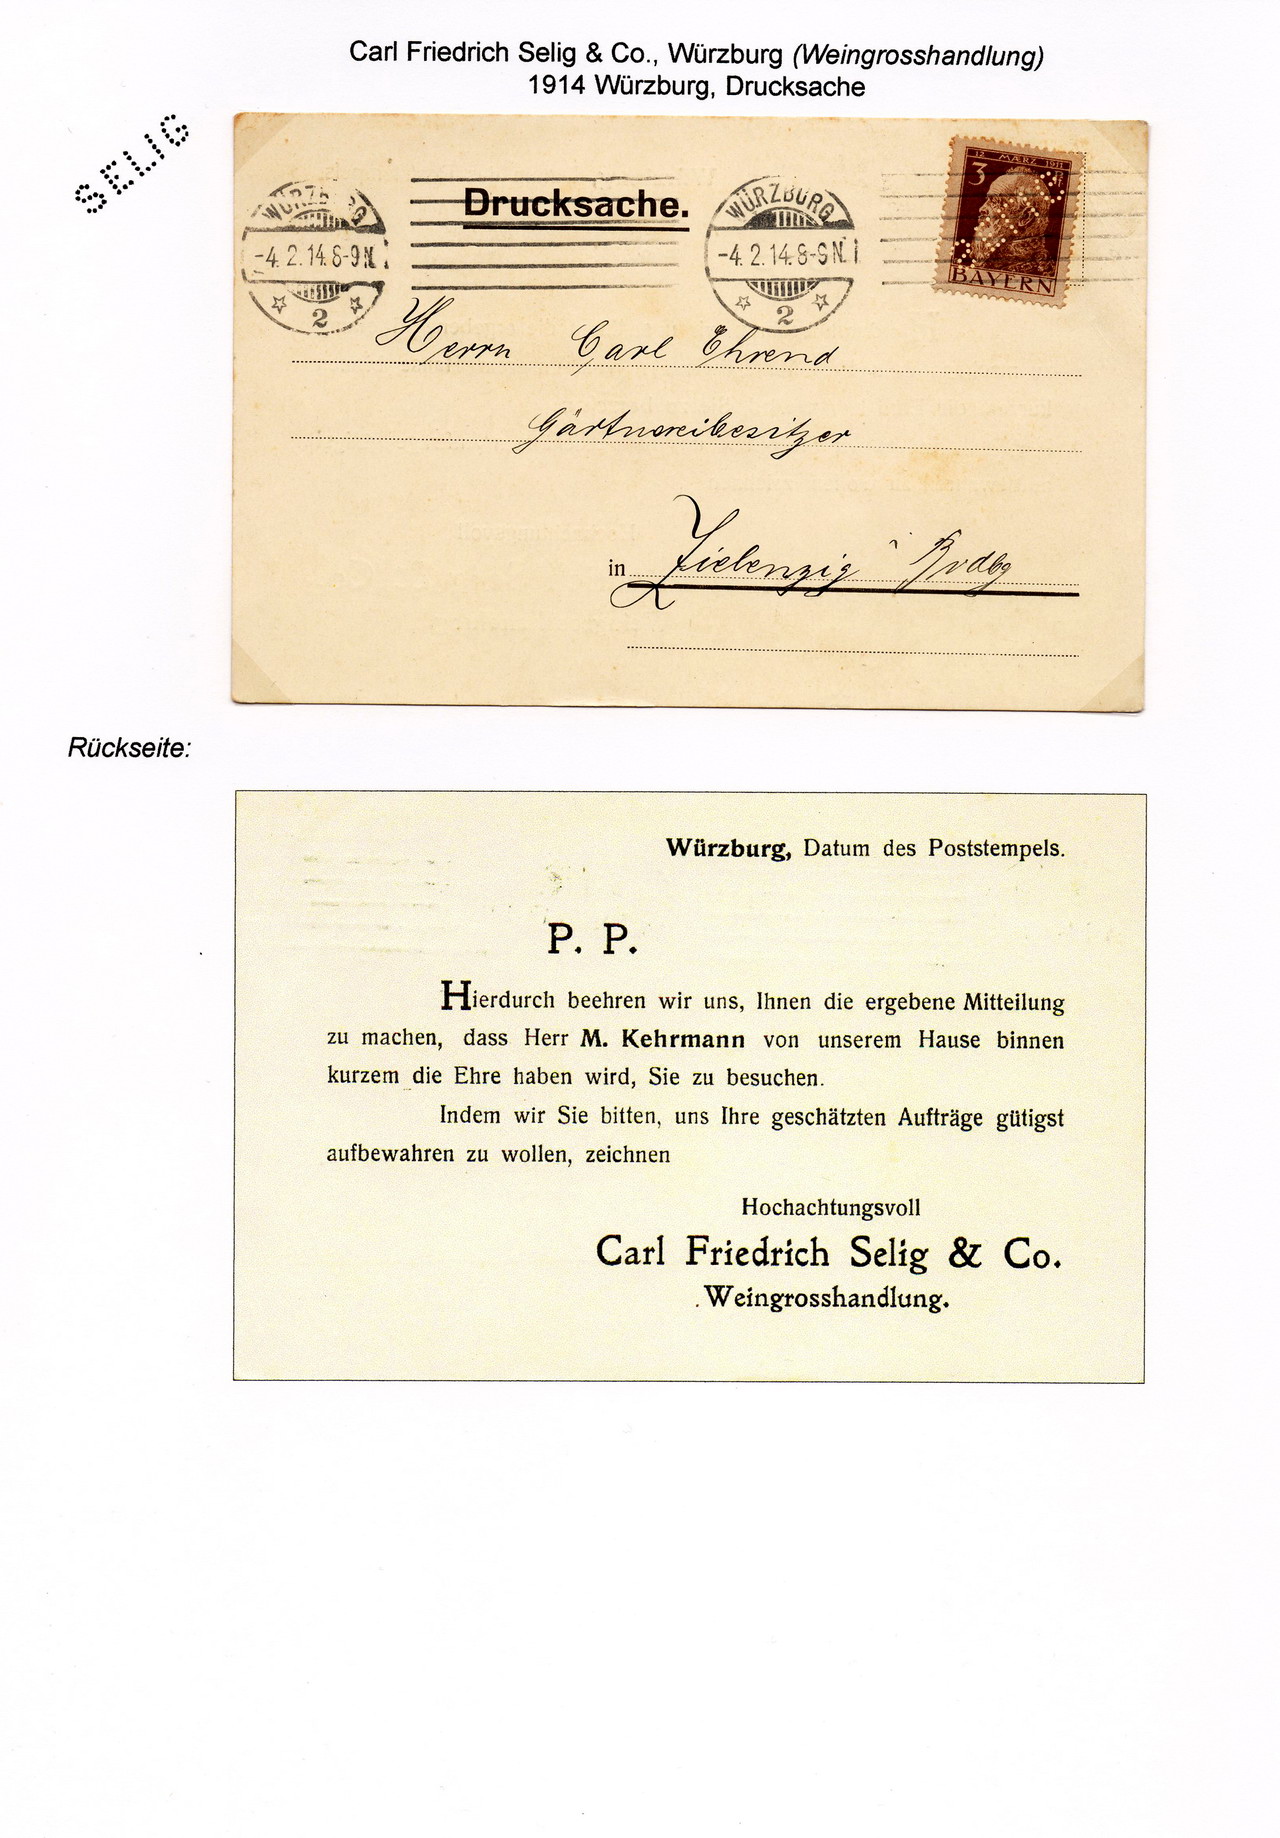 Carl Friedrich Selig & Co., Würzburg (Weingrosshandlung)
1914 Würzburg, Drucksache
SELIG
WÜRZBURG
-4.2.14.8-9N.
2
Drucksache.
WÜRZBURG
-4.2.14.8-9N.
2
12. MÆRZ 1911
3 Pf
BAYERN
Herrn Carl Ehrend
Gärtnereibesitzer
in Zielenzig Brdbg
Rückseite:
Würzburg, Datum des Poststempels.
P. P.
Hierdurch beehren wir uns, Ihnen die ergebene Mitteilung
zu machen, dass Herr M. Kehrmann von unserem Hause binnen
kurzem die Ehre haben wird, Sie zu besuchen.
Indem wir Sie bitten, uns Ihre geschätzten Aufträge gütigst
aufbewahren zu wollen, zeichnen
Hochachtungsvoll
Carl Friedrich Selig & Co.
Weingrosshandlung.